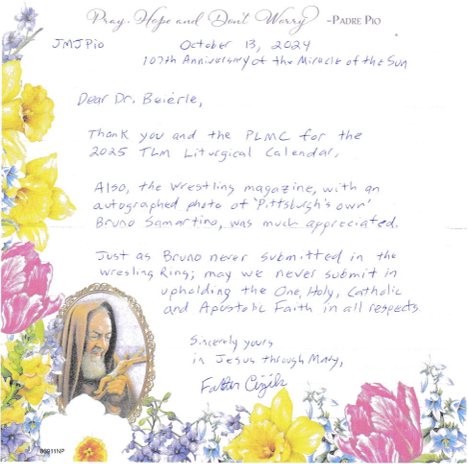 Pray, Hope and Don't Worry ~PADRE PIO
JMJPio October 13, 2024
107th Anniversary of the Miracle of the Sun
Dear Dr. Beierle,
Thank you and the PLMC for the
2025 TLM Liturgical Calendar.
Also, the wrestling magazine, with an
autographed photo of 'Pittsburgh's own'
Bruno Samartino, was much appreciated.
Just as Bruno never submitted in the
wrestling Ring; may we never submit in
upholding the One, Holy, Catholic
and Apostolic Faith in all respects
Sincerely yours
in Jesus through Mary,
Father